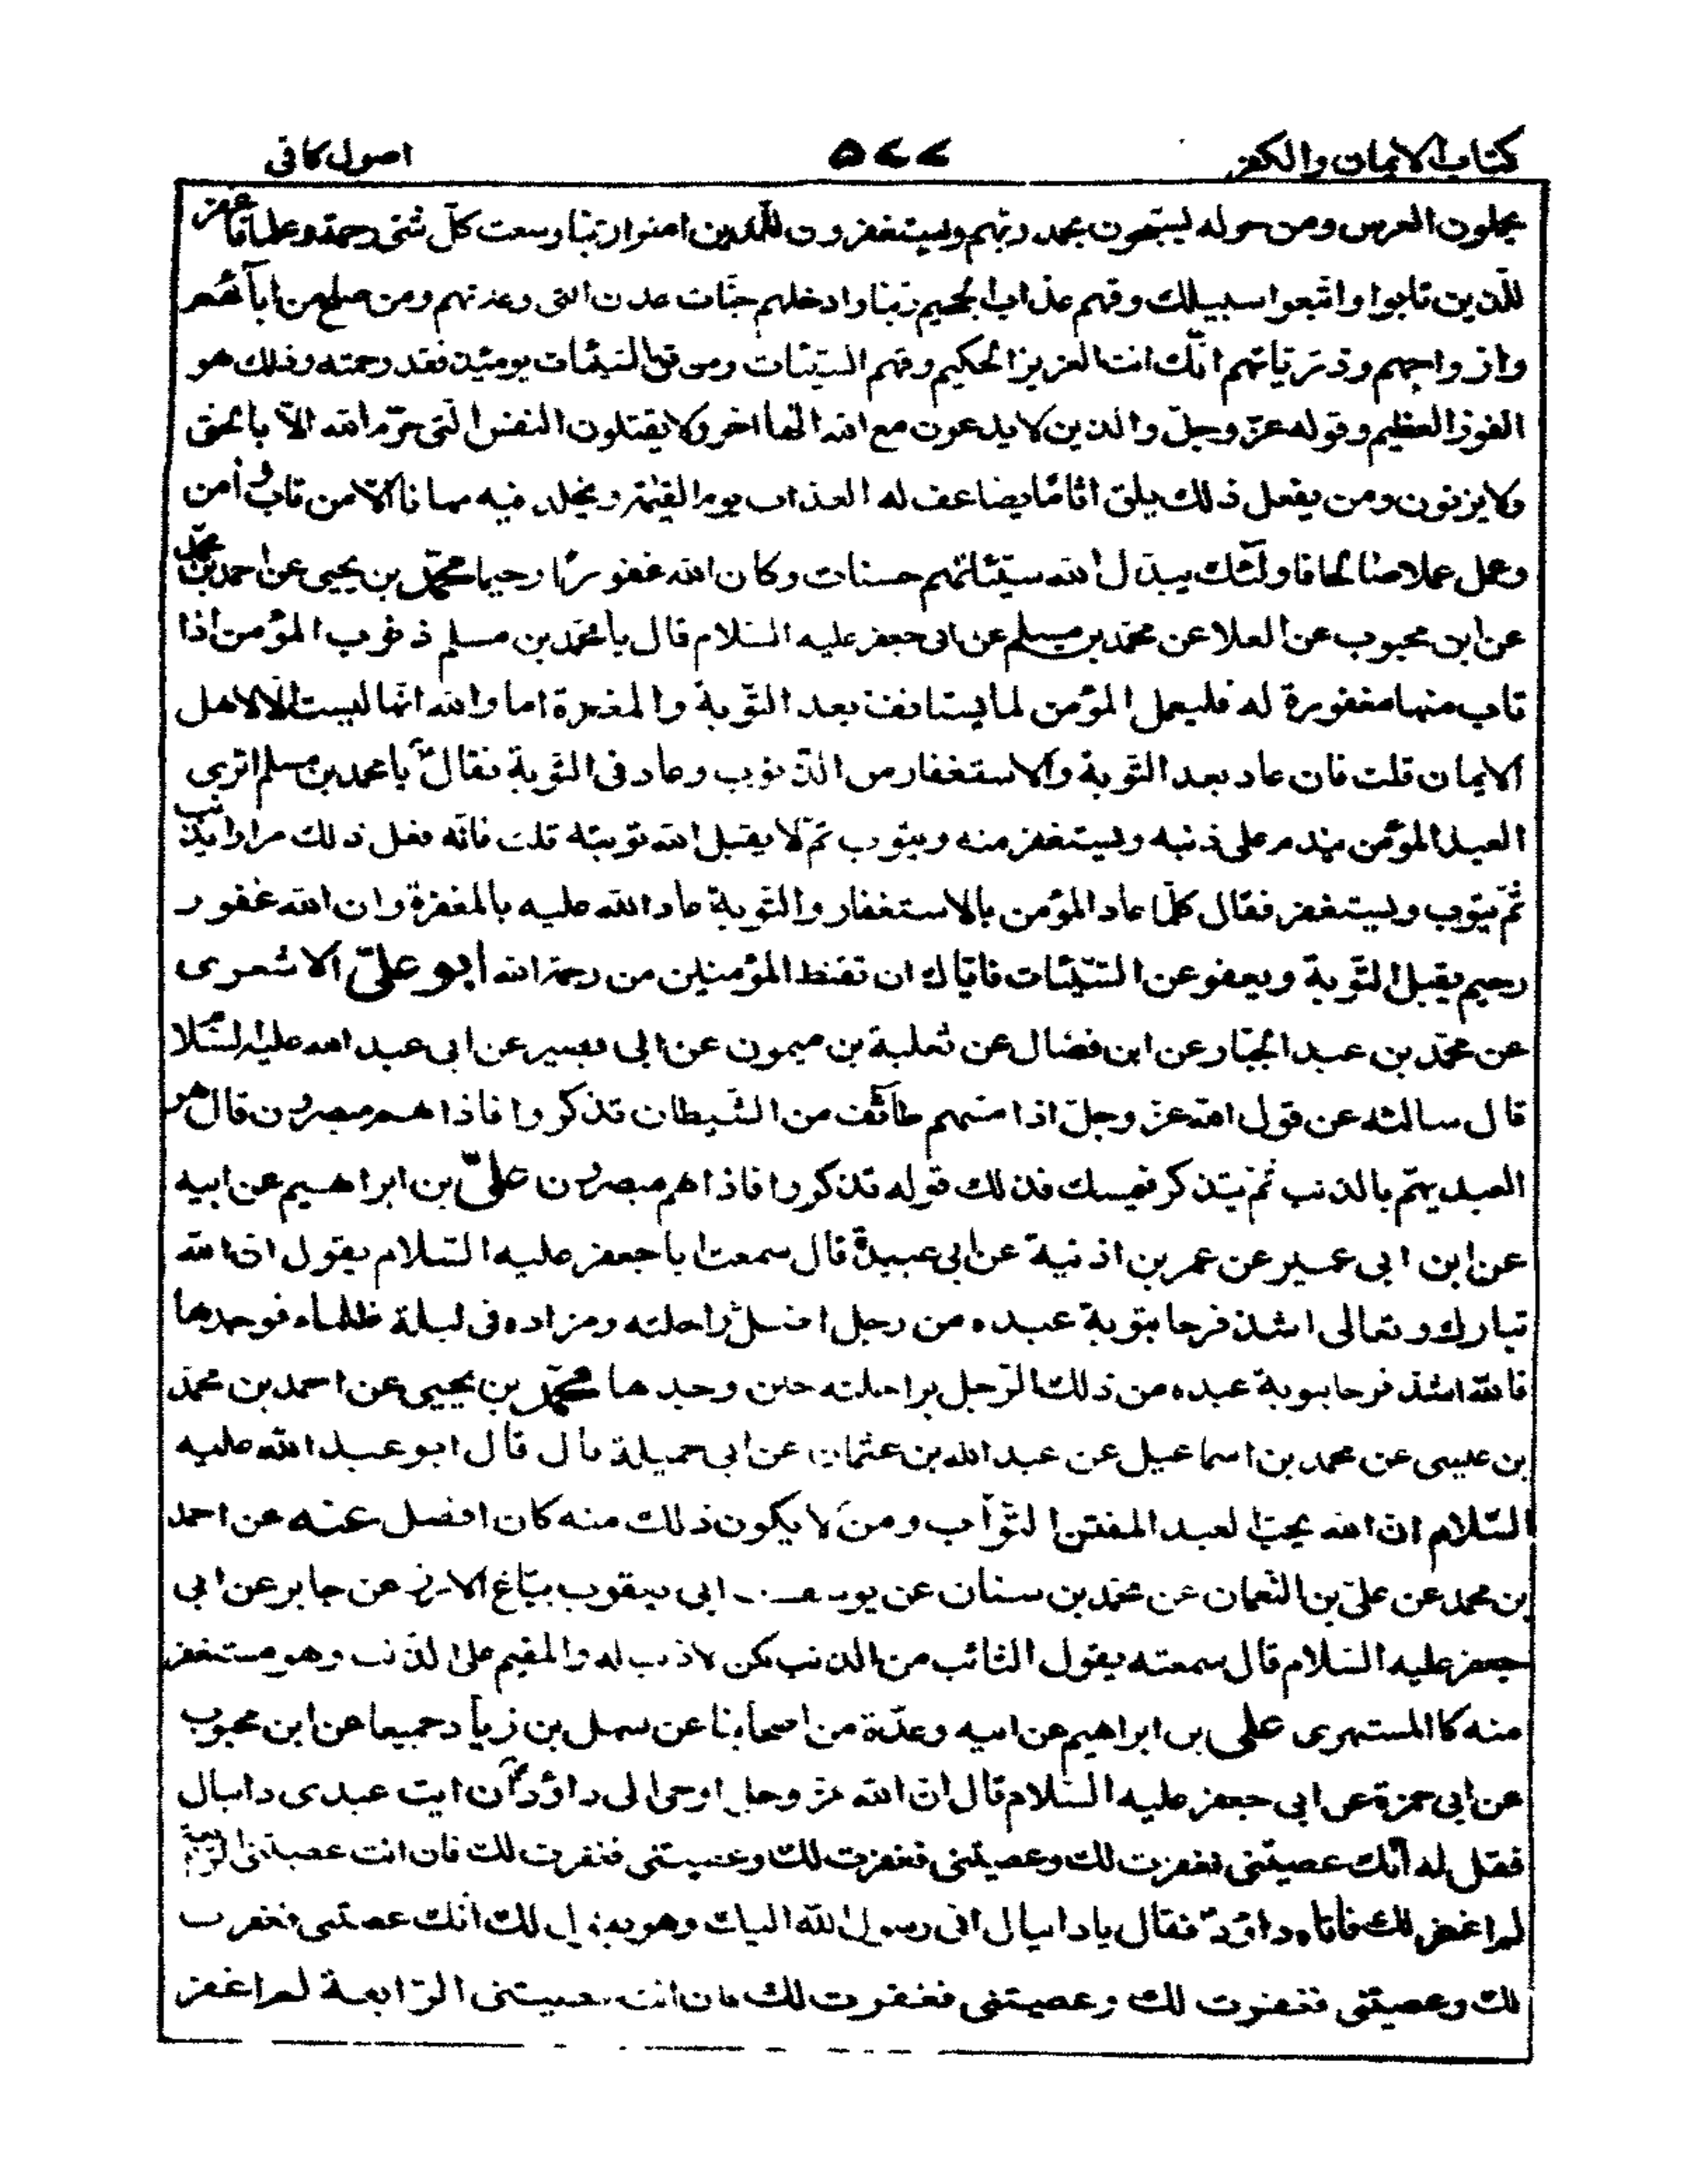 كتاب الايمان والكفر ٥٧٧ اصول كافى
يحملون العرش ومن حوله يسبّحون بحمد ربّهم ويستغفرون للّذين امنوا ربّنا وسعت كلّ شئ رحمة وعلما فاغفر
للّذين تابوا واتّبعوا سبيلك وقهم عذاب الجحيم ربّنا وادخلهم جنّات عدن التى وعدتهم ومن صلح من ابآئهم
وازواجهم وذرّيّاتهم انّك انت العزيز الحكيم وقهم السيّئات ومن تق السّيئات يومئذ فقد رحمته وذلك هو
الفوز العظيم وقوله عزّ وجلّ والذين لا يدعون مع الله الها اخر ولا يقتلون النفس الّتى حرّم الله الّا بالحق
ولا يزنون ومن يفعل ذلك يلق اثاما يضاعف له العذاب يوم القيٰمة ويخلد فيه مهانا الّا من تاب وامن
وعمل عملا صالحا فاولٓئك يبدّل الله سيّئاتهم حسنات وكان الله غفورا رحيما محمّد بن يحيى عن احمد بن محمّد
عن ابن محبوب عن العلا عن محمّد بن مسلم عن ابى جعفر عليه السّلام قال يا محمّد بن مسلم ذنوب المؤمن اذا
تاب منها مغفورة له فليعمل المؤمن لما يستانف بعد التّوبة والمغفرة اما والله انّها ليست الّا لاهل
الايمان قلت فان عاد بعد التّوبة والاستغفار من الذّنوب وعاد فى التّوبة فقال يا محمد بن مسلم اترى
العبد المؤمن يندم على ذنبه ويستغفر منه ويتوب ثمّ لا يقبل الله توبته قلت فانّه فعل ذلك مرارا يذنب
ثمّ يتوب ويستغفر فقال كلّما عاد المؤمن بالاستغفار والتّوبة عاد الله عليه بالمغفرة وان الله غفور
رحيم يقبل التّوبة ويعفو عن السّيّئات فايّاك ان تقنط المؤمنين من رحمة الله ابو علىّ الاشعرى
عن محمّد بن عبد الجبّار عن ابن فضّال عن ثعلبة بن ميمون عن ابى بصير عن ابى عبد الله عليه السّلام
قال سالته عن قول الله عزّ وجلّ اذا مسّهم طآئف من الشّيطان تذكروا فاذا هم مبصرون قال هو
العبد يهمّ بالذنب ثمّ يتذكر فيمسك فذلك قوله تذكروا فاذا هم مبصرون علىّ بن ابراهيم عن ابيه
عن ابن ابى عمير عن عمر بن اذنية عن ابى عبيدة قال سمعت ابا جعفر عليه السّلام يقول ان الله
تبارك وتعالى اشدّ فرحا بتوبة عبده من رجل اضلّ راحلته ومزاده فى ليلة ظلماء فوجدها
فالله اشدّ فرحا بتوبة عبده من ذلك الرّجل براحلته حين وجدها محمّد بن يحيى عن احمد بن محمّد
بن عيسى عن محمد بن اسماعيل عن عبد الله بن عثمان عن ابى جميلة قال قال ابو عبد الله عليه
السّلام ان الله يحبّ العبد المفتن التّوّاب ومن لا يكون ذلك منه كان افضل عنه عن احمد
بن محمد عن علىّ بن النّعمان عن محمّد بن سنان عن يوسف ابى يعقوب بيّاع الارز عن جابر عن ابى
جعفر عليه السّلام قال سمعته يقول التائب من الذنب كمن لا ذنب له والمقيم على الذّنب وهو مستغفر
منه كالمستهزى على بن ابراهيم عن ابيه وعدّة من اصحابنا عن سهل بن زياد جميعا عن ابن محبوب
عن ابى حمزة عن ابى جعفر عليه السّلام قال ان الله عزّ وجل اوحى الى داؤد ان ايت عبدى دانيال
فقل له انّك عصيتنى فغفرت لك وعصيتنى فغفرت لك وعصيتنى فغفرت لك فان انت عصيتنى الرّابعة
لم اغفر لك فاتاه داؤد فقال يا دانيال انى رسول الله اليك وهو يقول لك انك عصيتنى فغفرت
لك وعصيتنى فغفرت لك وعصيتنى فغفرت لك فان انت عصيتنى الرّابعة لم اغفر